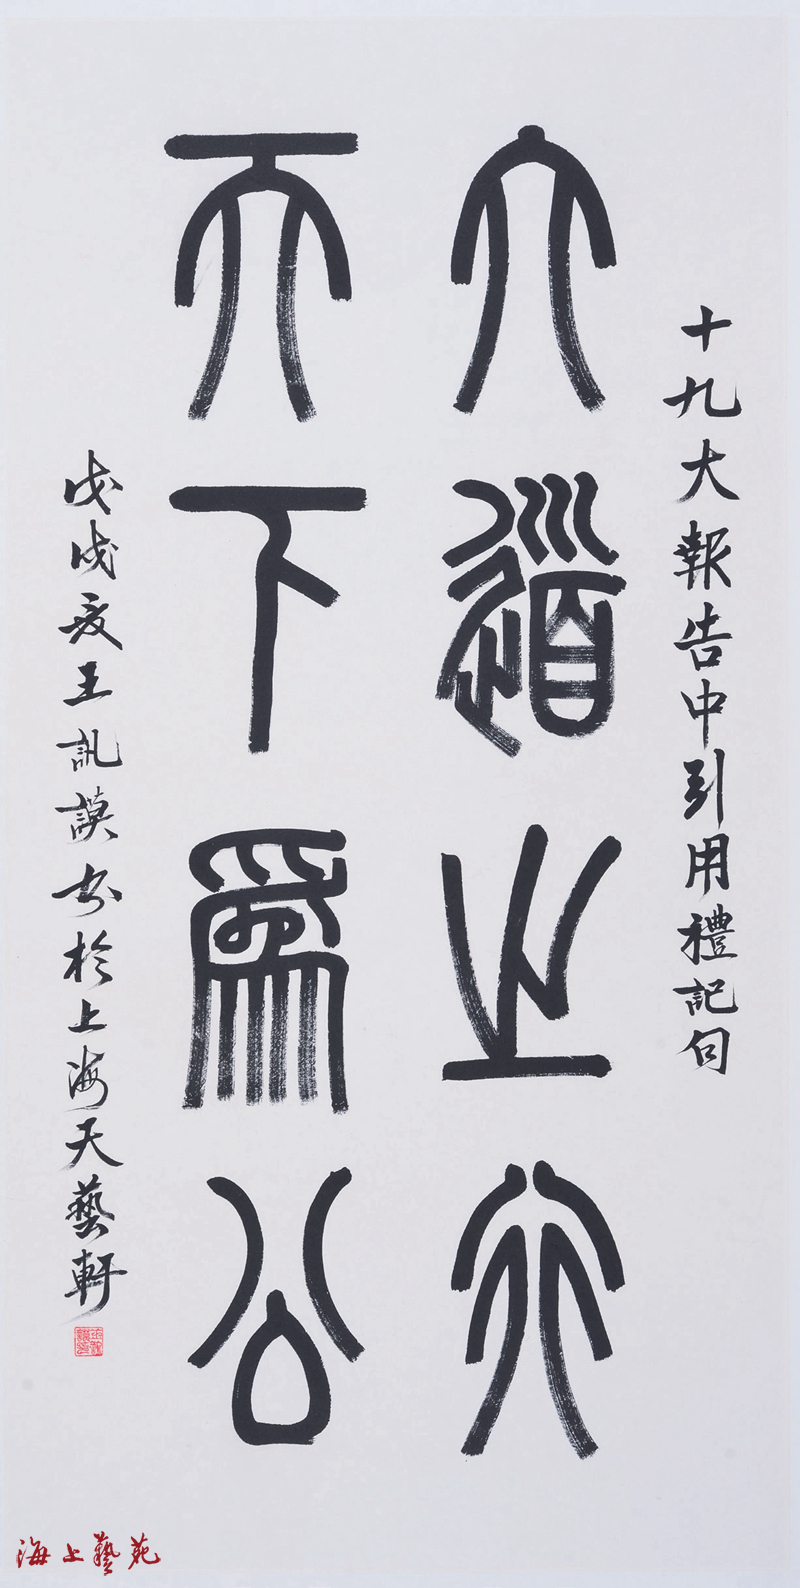 十九大報告中引用禮記句
大道之行
天下爲公
戊戌夏王訊謨書於上海天藝軒
海上藝苑